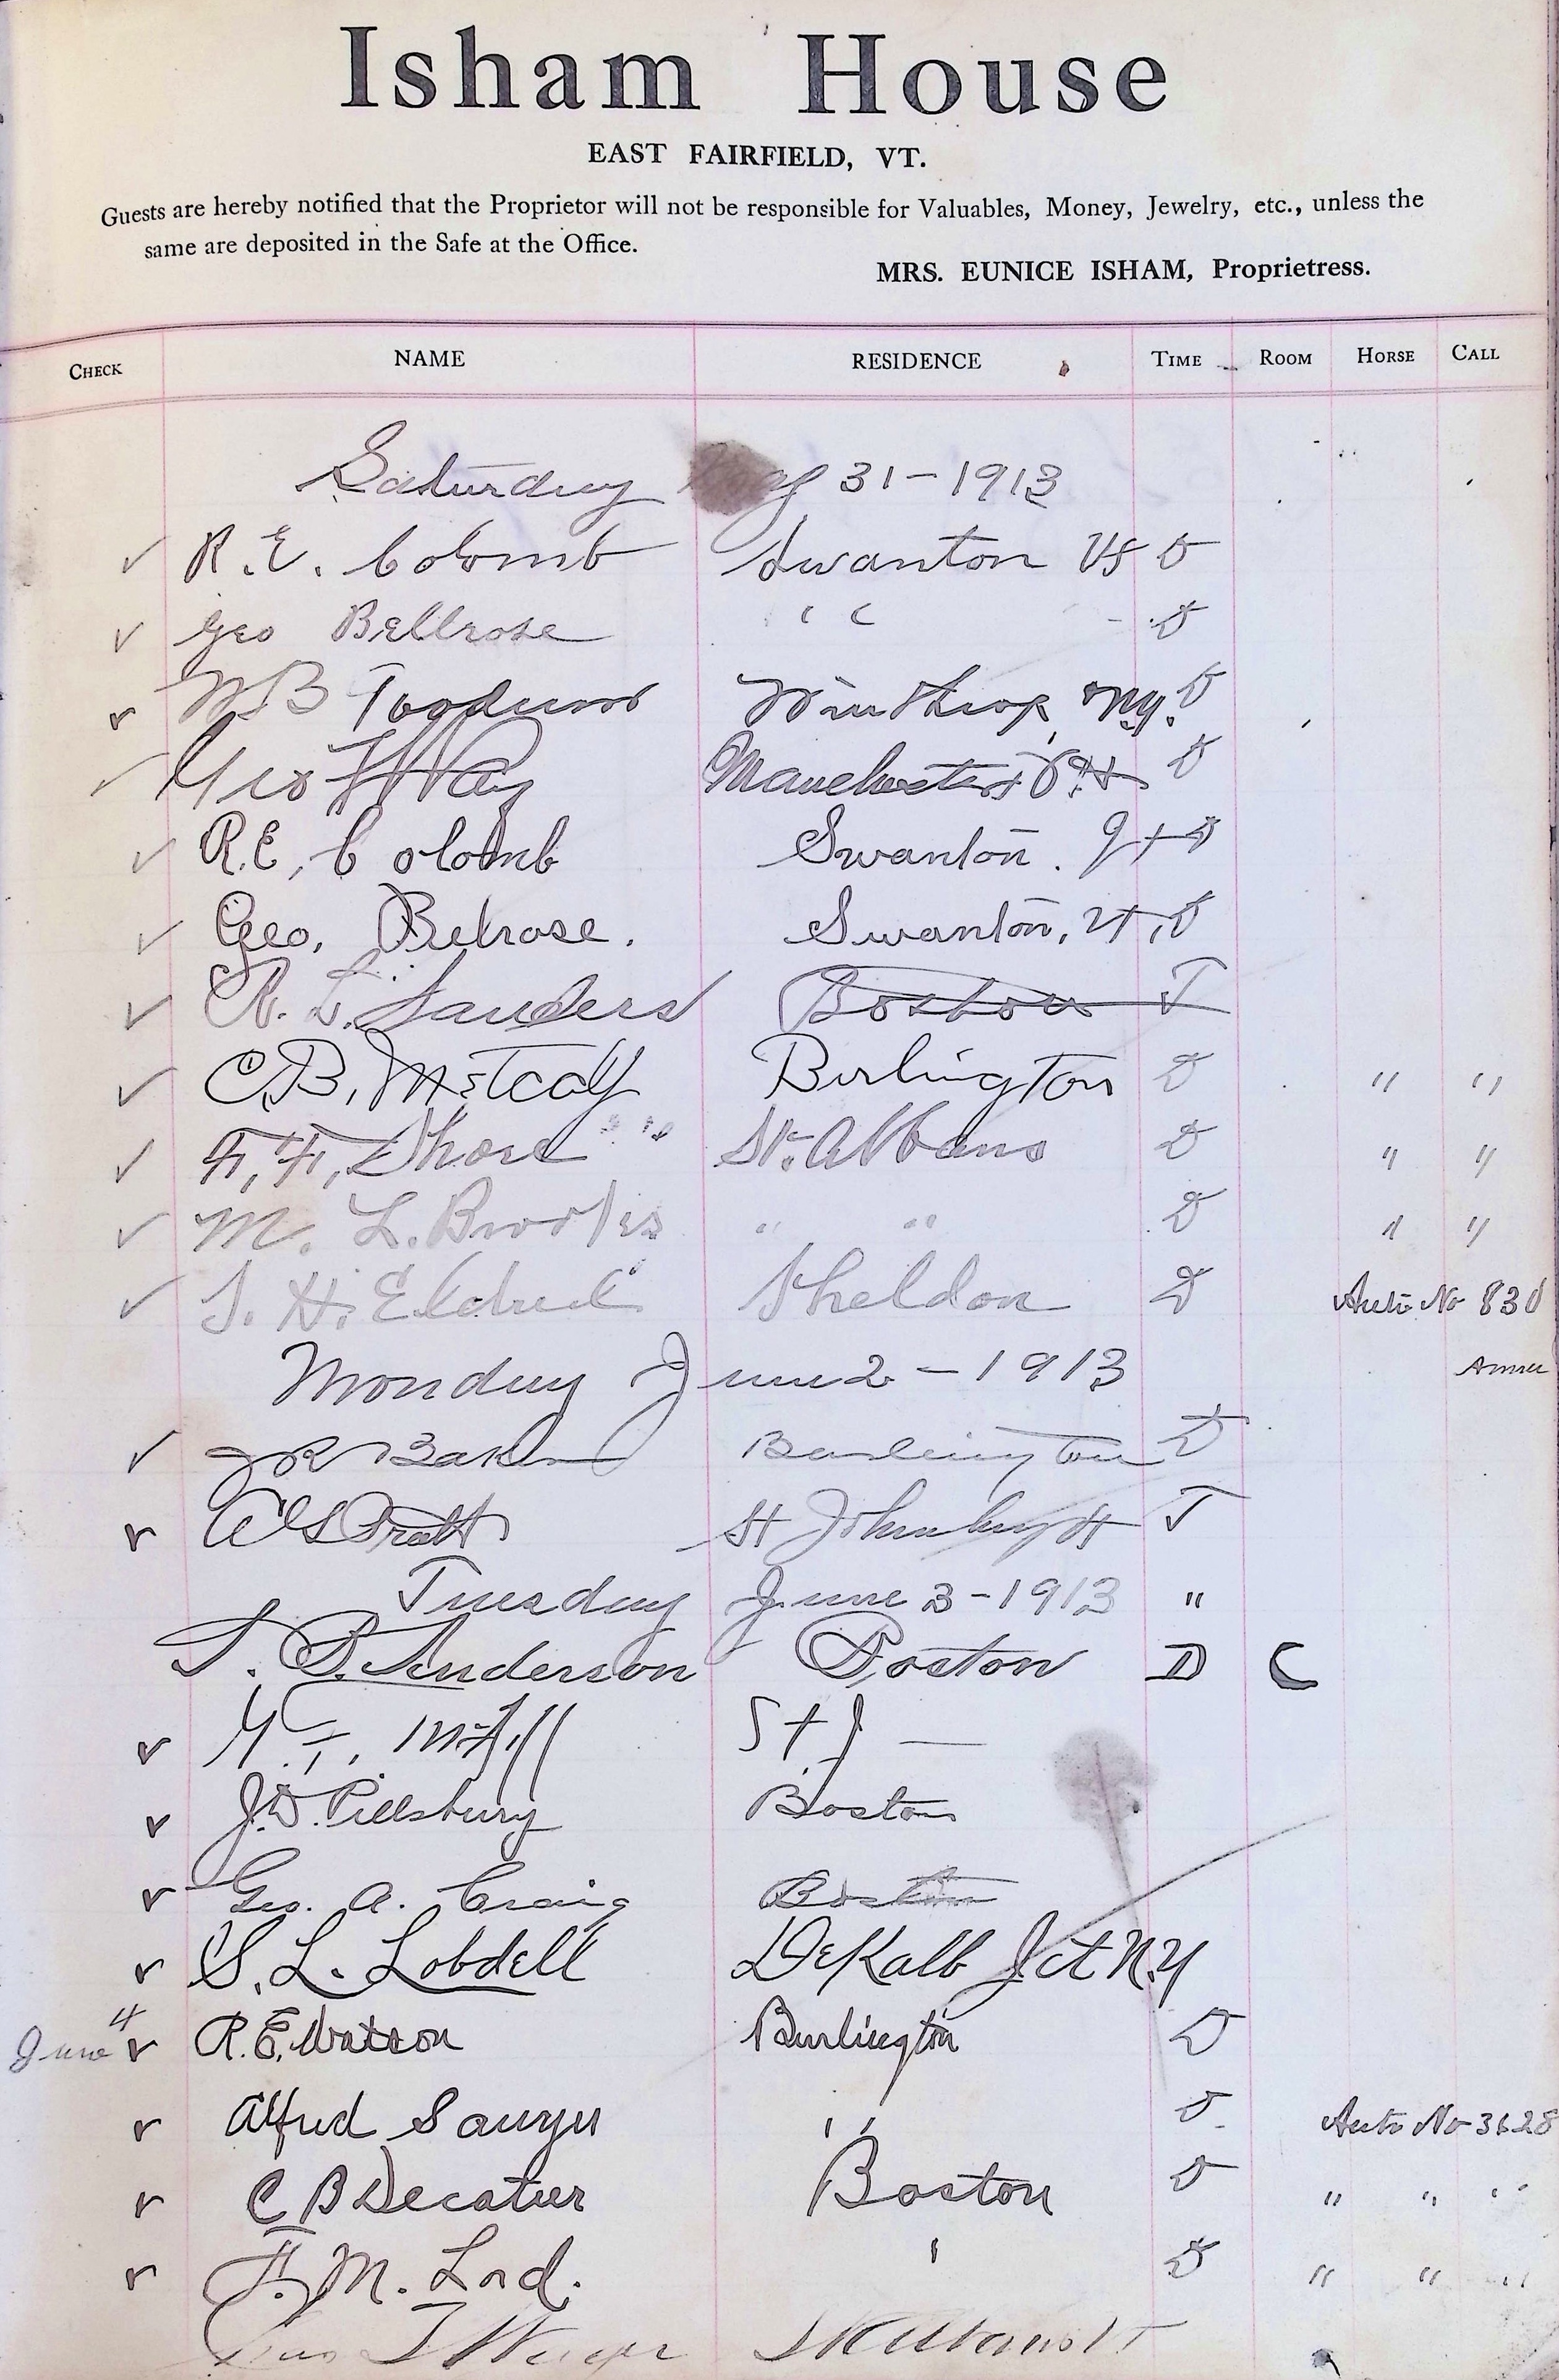 Isham House
EAST FAIRFIELD, VT.
Guests are hereby notified that the Proprietor will not be responsible for Valuables, Money, Jewelry, etc., unless the
same are deposited in the Safe at the Office.
MRS. EUNICE ISHAM, Proprietress.
CHECK NAME RESIDENCE TIME ROOM HORSE CALL
Saturday 31-1913
✓ R.E. Colomb Swanton Vt D
✓ Geo Bellrose " D
✓ W B Winthrop, N.Y. D
✓ Geo Way Manchester D
✓ R.E, Colomb Swanton. Vt D
✓ Geo, Belrose. Swanton, Vt, D
✓ R. L. Sanders Boston T
✓ C.B, Metcalf Burlington D " "
✓ F, F, Shore St. Albans D " "
✓ M. L. Brooks " " D " "
✓ S. H. Eldred Sheldon D Auto No 830
Monday June 2-1913
✓ J R Baker Burlington D
✓ Pratt St Johnsbury Vt T
Tuesday June 3-1913 "
T. B. Anderson Boston D C
✓ St J —
✓ J.D. Pillsbury Boston
✓ Geo. A. Craig Boston
✓ S. L. Lobdell DeKalb Jct N.Y
June 4 ✓ R.E. Watson Burlington D
✓ Alfred Sawyer " D Auto No 3628
✓ C B Decatur Boston D " " "
✓ F. M. Lord. ' D " " "
St Albans Vt